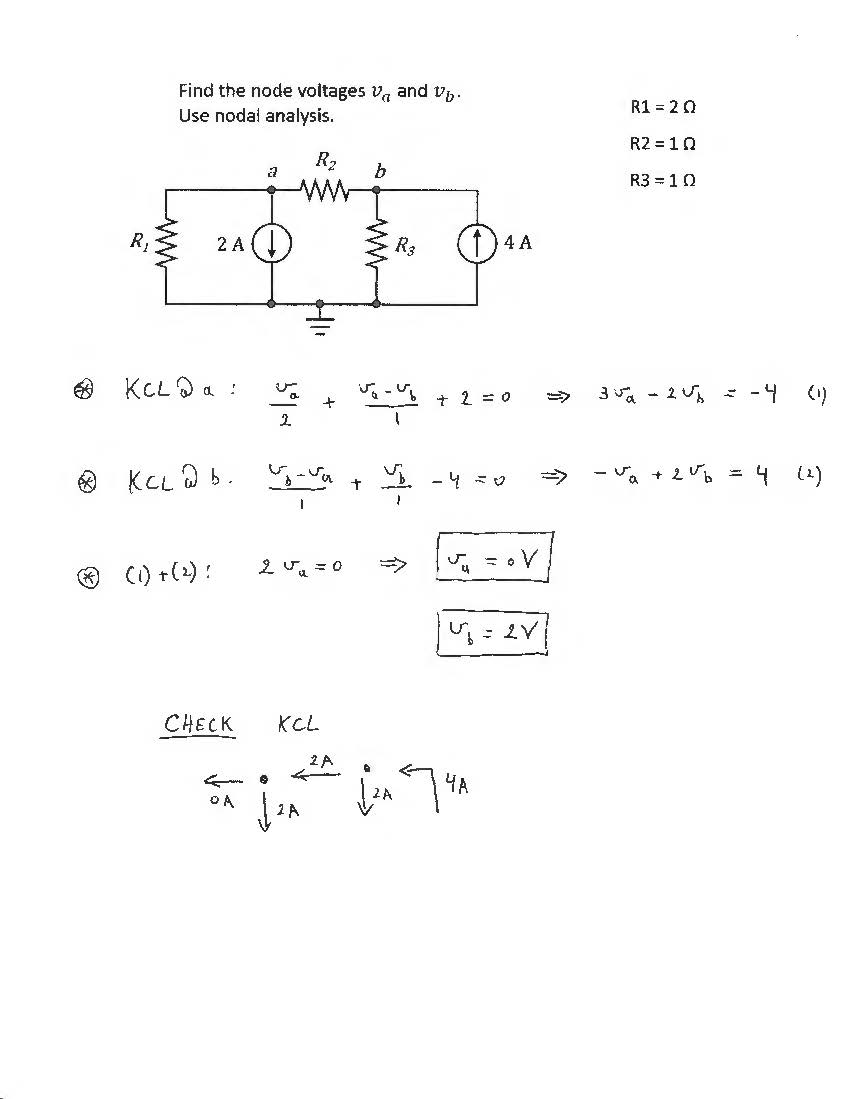 Find the node voltages vₐ and v_b.
Use nodal analysis.
R1 = 2 Ω
R2 = 1 Ω
R3 = 1 Ω
a R₂ b
R₁ 2 A R₃ 4 A
⊛ KCL @ a : vₐ/2 + (vₐ - v_b)/1 + 2 = 0 ⇒ 3vₐ - 2v_b = -4 (1)
⊛ KCL @ b. (v_b - vₐ)/1 + v_b/1 - 4 = 0 ⇒ -vₐ + 2v_b = 4 (2)
⊛ (1) + (2) : 2vₐ = 0 ⇒ vₐ = 0V
v_b = 2V
CHECK KCL
2A
0A 2A 2A 4A